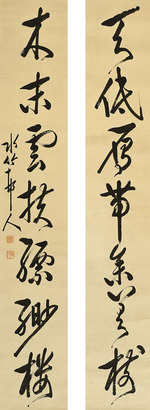 天低雁帶參差樹
木末雲扶縹緲樓
水竹邨人